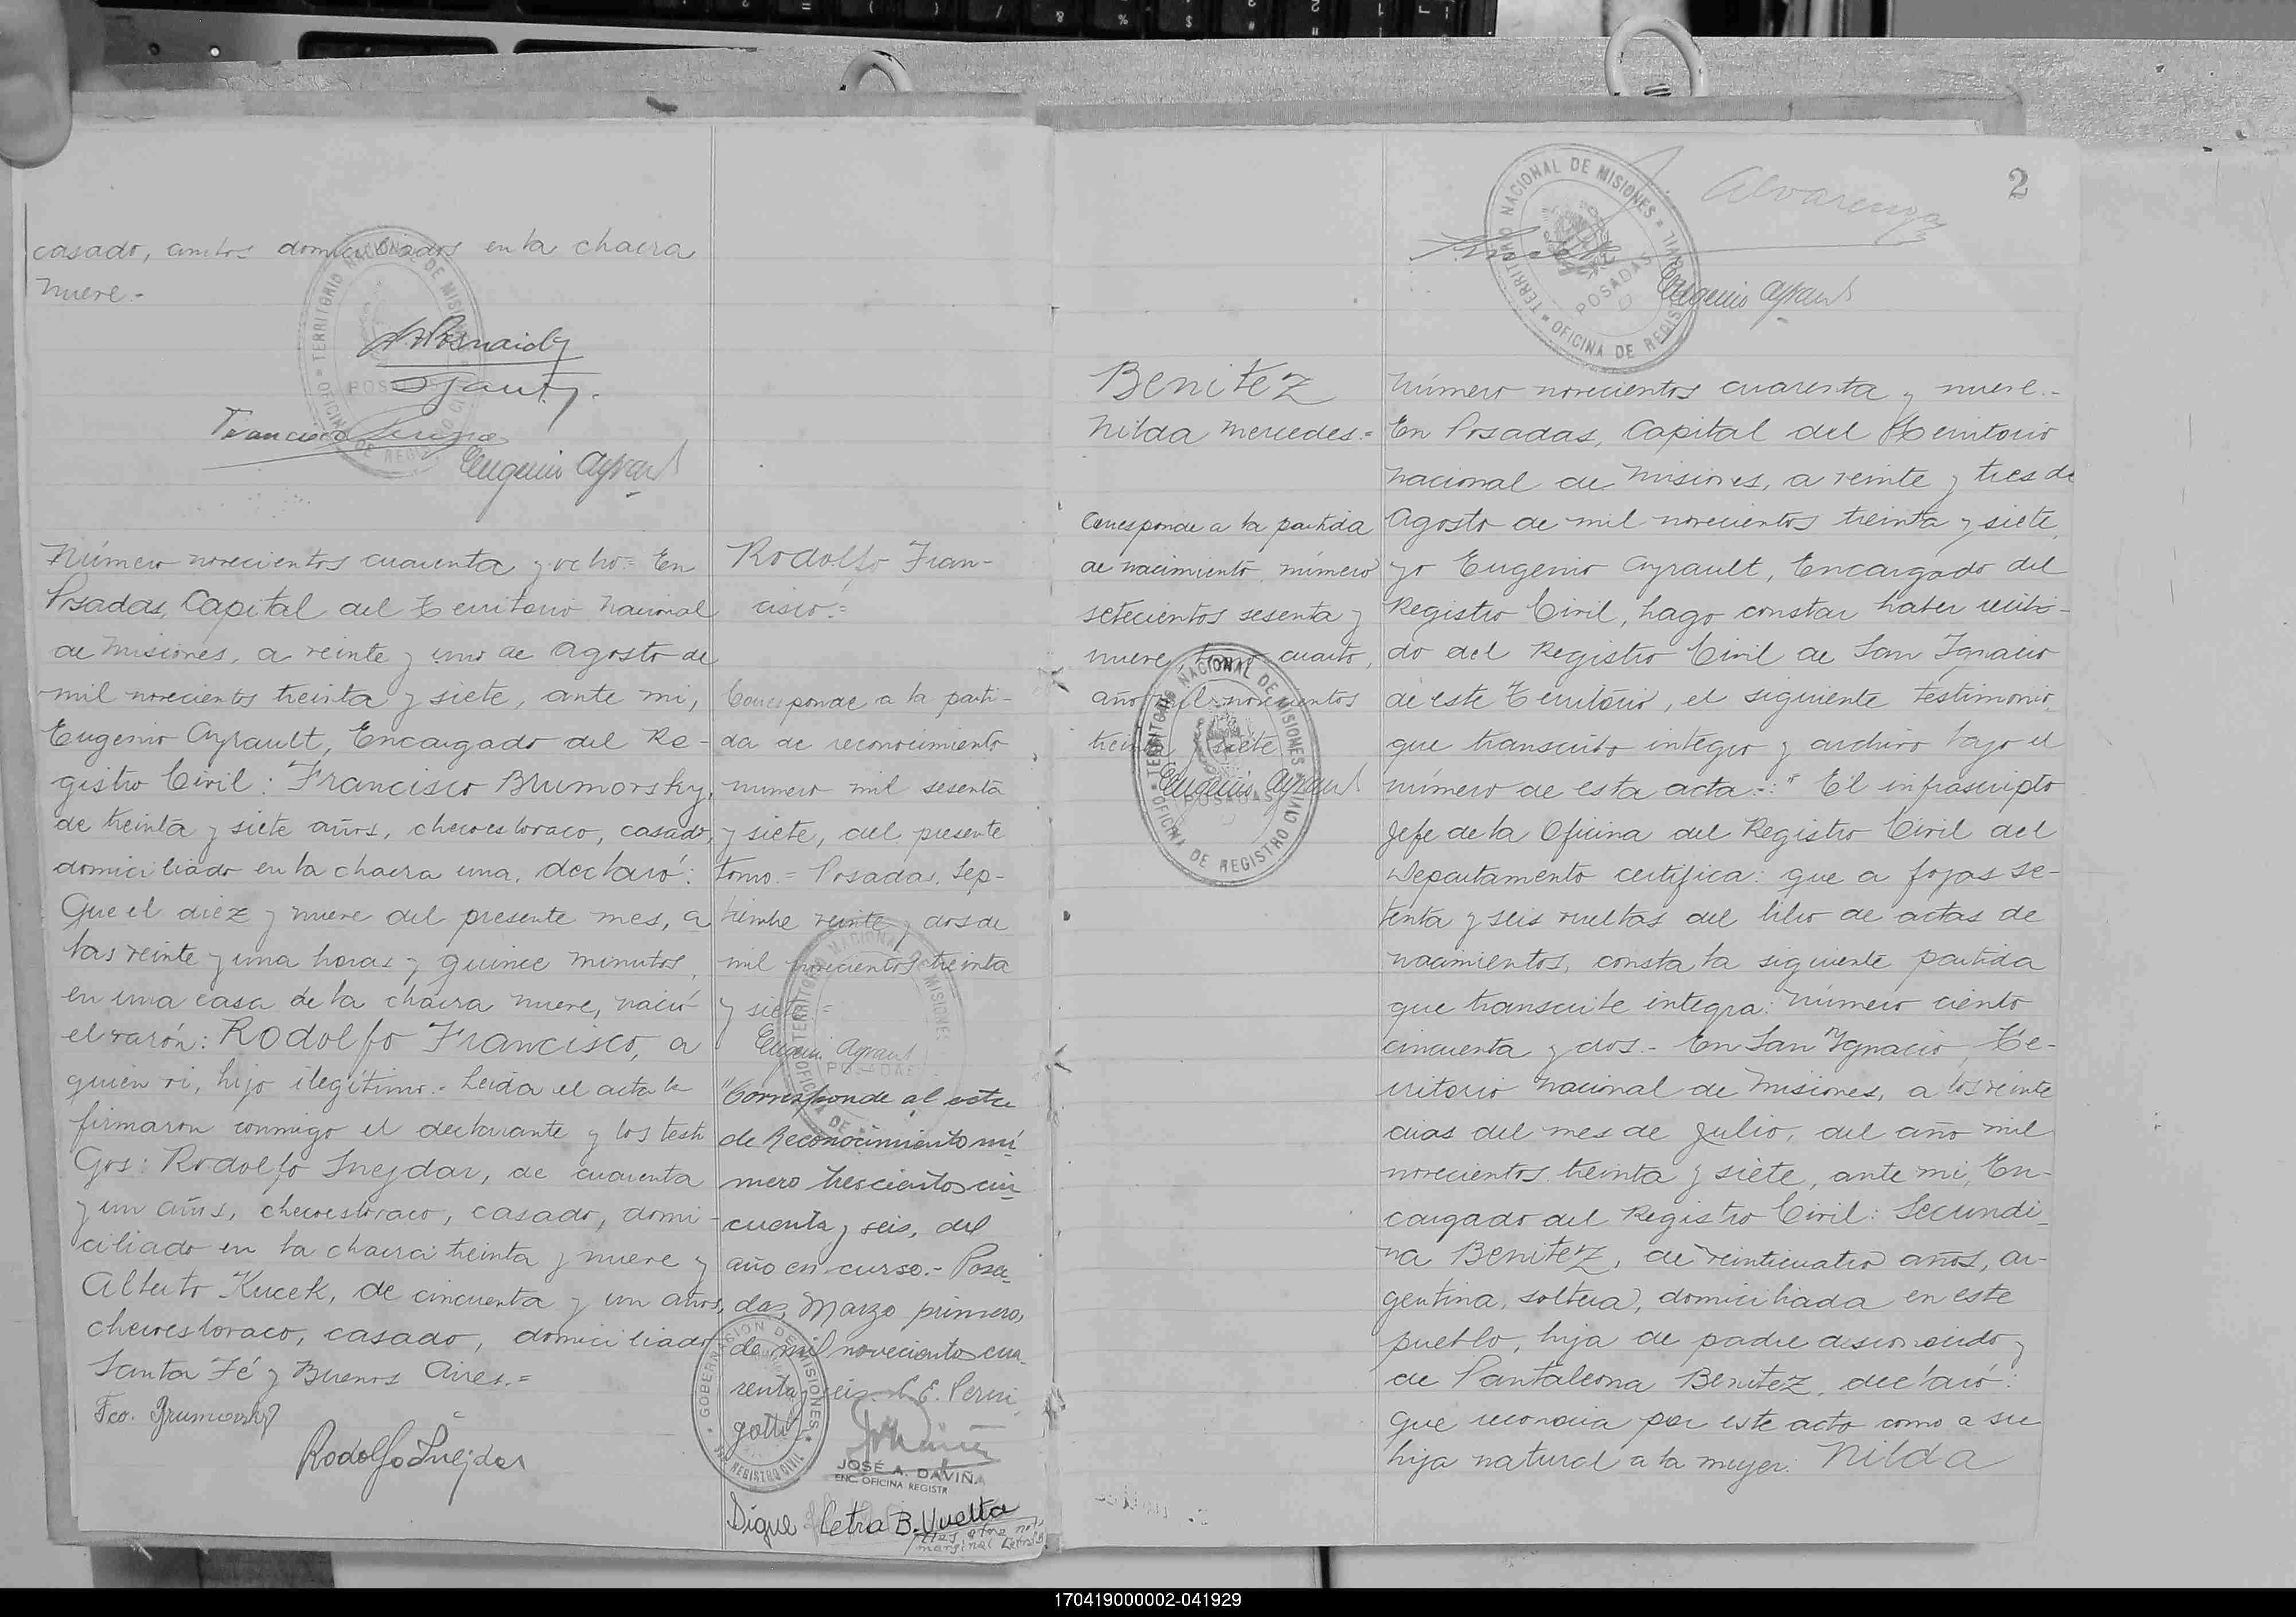 casado, ambos domiciliados en la chacra
nueve.-
Francisco
Eugenio Ayrault
Número novecientos cuarenta y ocho.= En
Posadas, Capital del Territorio Nacional
de Misiones, a veinte y uno de Agosto de
mil novecientos treinta y siete, ante mi,
Eugenio Ayrault, Encargado del Re-
gistro Civil: Francisco Brumovsky,
de treinta y siete años, checoeslovaco, casado,
domiciliado en la chacra una, declaró:
Que el diez y nueve del presente mes, a
las veinte y una horas y quince minutos,
en una casa de la chacra nueve, nació
el varón: Rodolfo Francisco, a
quien vi, hijo ilegítimo.- Leida el acta la
firmaron conmigo el declarante y los testi
gos: Rodolfo Snejdar, de cuarenta
y un años, checoeslovaco, casado, domi-
ciliado en la chacra treinta y nueve y
Alberto Kucek, de cincuenta y un años,
checoeslovaco, casado, domiciliado
Santa Fé y Buenos Aires.=
Fco. Brumovsky
Rodolfo Snejdar
Rodolfo Fran-
cisco=
Corresponde a la parti-
da de reconocimiento
numero mil sesenta
y siete, del presente
tomo.= Posadas, Sep-
tiembre veinte y dos de
mil novecientos treinta
y siete=
Eugenio Ayrault
"Corresponde al acta
de Reconocimiento nú-
mero trescientos cin-
cuenta y seis, del
año en curso.- Posa-
das, Marzo primero,
de mil novecientos cua-
renta y seis. C. E. Perni
gotti
GOBERNACION DE MISIONES
REGISTRO CIVIL
JOSÉ A. DAVIÑA
ENC. OFICINA REGISTR
Sigue Letra B. Vuelta
marginal Letra B.
2
Alvarenga
TERRITORIO NACIONAL DE MISIONES
POSADAS
OFICINA DE REGISTRO CIVIL
Eugenio Ayrault
Benitez
Nilda Mercedes.=
Corresponde a la partida
de nacimiento número
setecientos sesenta y
nueve, tomo cuarto,
año mil novecientos
treinta y siete
Eugenio Ayrault
TERRITORIO NACIONAL DE MISIONES
POSADAS
OFICINA DE REGISTRO CIVIL
Número novecientos cuarenta y nueve.-
En Posadas, Capital del Territorio
Nacional de Misiones, a veinte y tres de
Agosto de mil novecientos treinta y siete,
yo Eugenio Ayrault, Encargado del
Registro Civil, hago constar haber recibi-
do del Registro Civil de San Ignacio
de este Territorio, el siguiente testimonio,
que transcribo integro y archivo bajo el
número de esta acta.-:" El infrascripto
Jefe de la Oficina del Registro Civil del
Departamento certifica: que a fojas se-
tenta y seis vueltas del libro de actas de
nacimientos, consta la siguiente partida
que transcribe integra: Número ciento
cincuenta y dos.- En San Ygnacio, Te-
rritorio Nacional de Misiones, a los veinte
dias del mes de Julio, del año mil
novecientos treinta y siete, ante mi, En-
cargado del Registro Civil: Secundi-
na Benitez, de veinticuatro años, ar-
gentina, soltera, domiciliada en este
pueblo, hija de padre desconocido y
de Pantaleona Benitez, declaró:
que reconocia por este acto como a su
hija natural a la mujer: Nilda
170419000002-041929